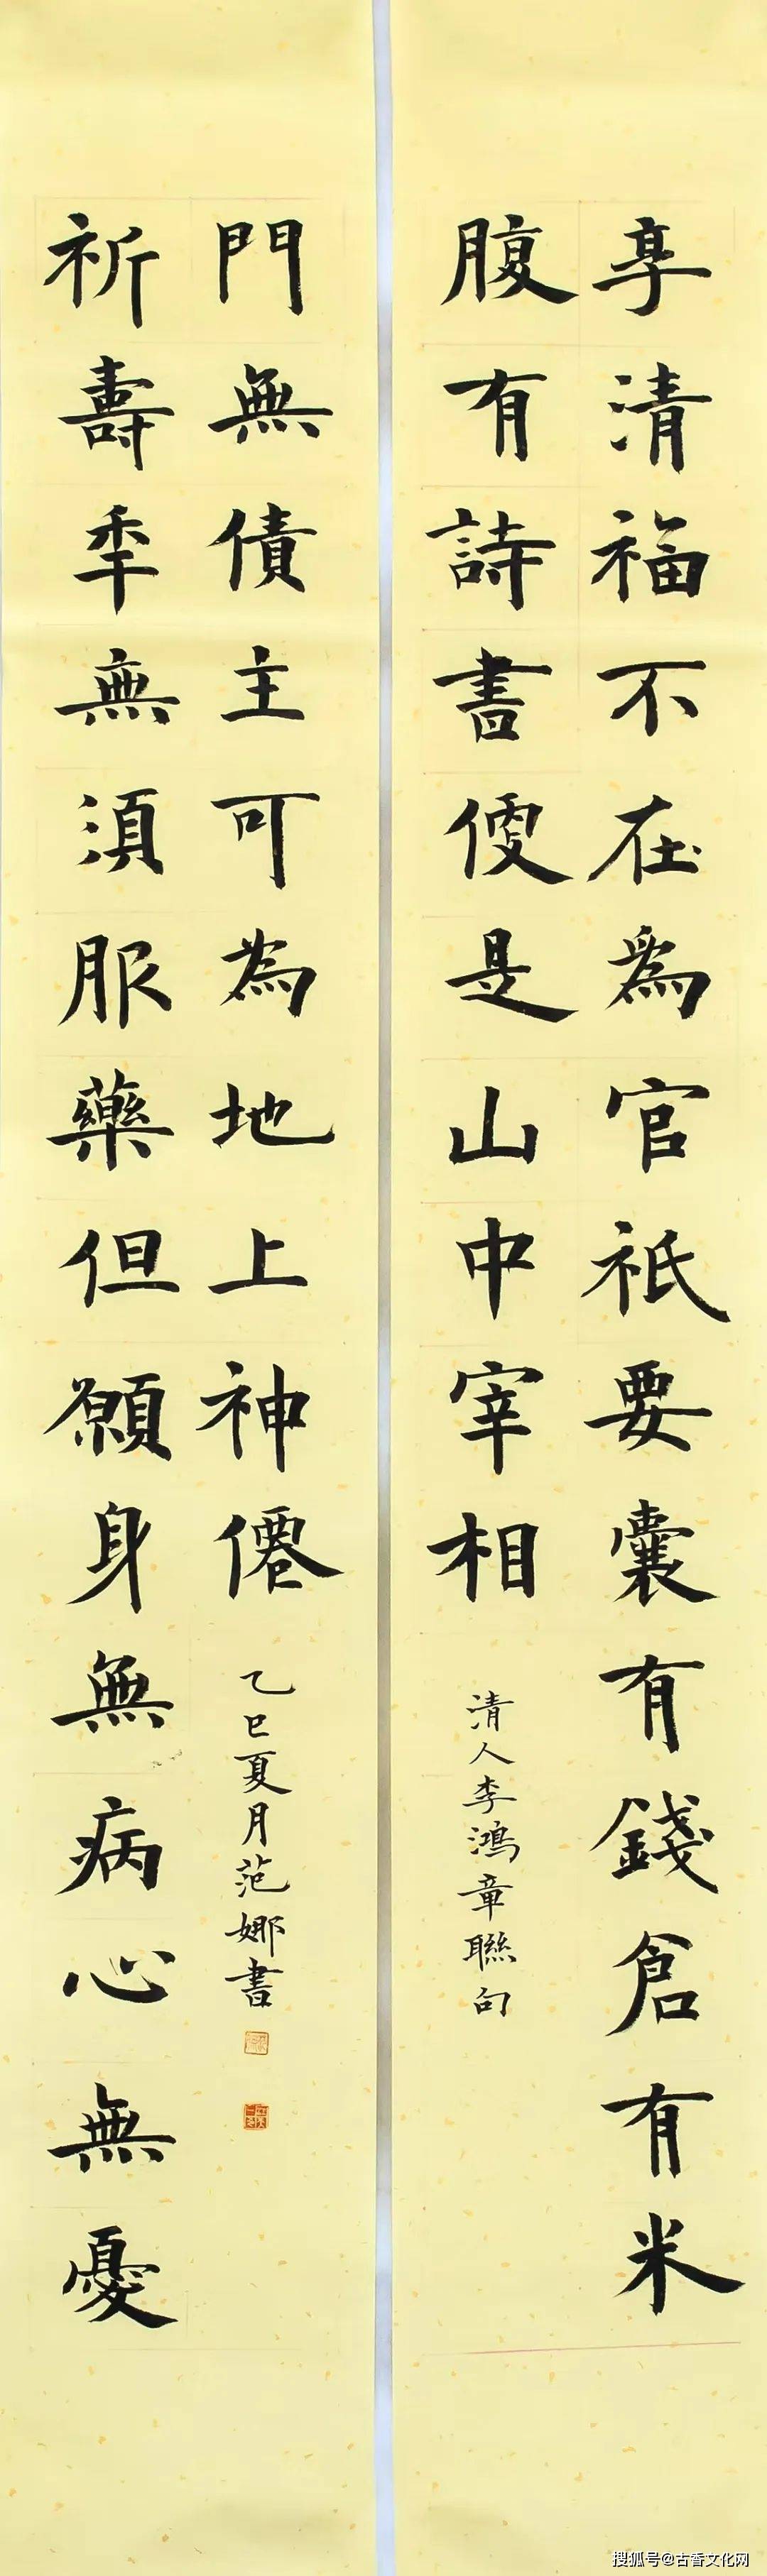 享清福不在爲官祇要囊有錢倉有米
腹有詩書便是山中宰相
清人李鴻章聯句
祈壽秊無須服藥但願身無病心無憂
門無債主可為地上神僊
乙巳夏月范娜書
搜狐号@古香文化网